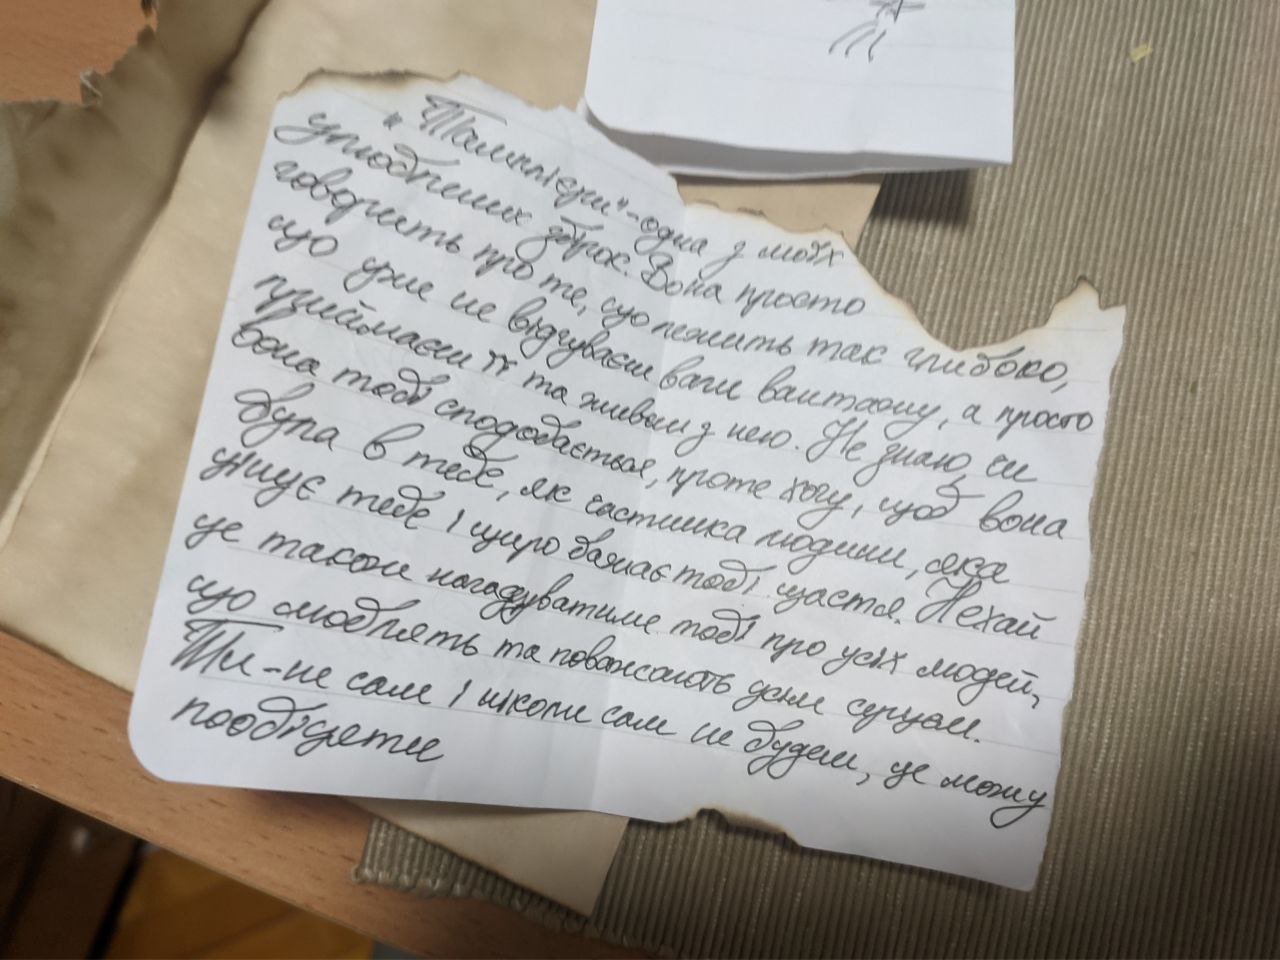 "Тамплієри" - одна з моїх
улюблених збірок. Вона просто
говорить про те, що лежить так глибоко,
що уже не відчуваєш ваги вантажу, а просто
приймаєш її та живеш з нею. Не знаю, чи
вона тобі сподобається, проте хочу, щоб вона
була в тебе, як частинка людини, яка
цінує тебе і щиро бажає тобі щастя. Нехай
це також нагадуватиме тобі про усіх людей,
що люблять та поважають усім серцем.
Ти - не сам і ніколи сам не будеш, це можу
пообіцяти